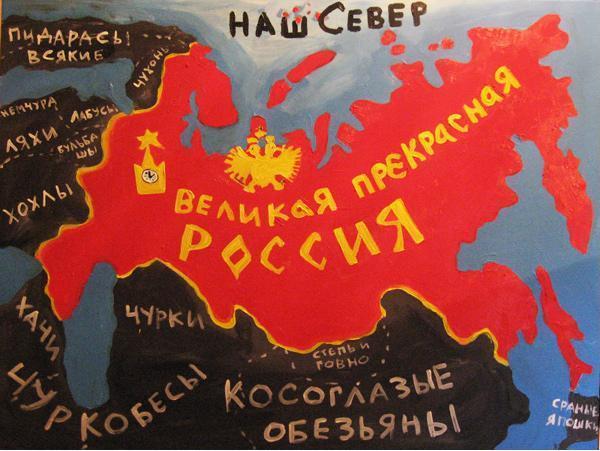 НАШ СЕВЕР
ПИДАРАСЫ
ВСЯКИЕ
ЧУХОНЬ
НЕМЧУРА
ЛАБУСЫ
ЛЯХИ
БУЛЬБА
ШЫ
ХОХЛЫ
ВЕЛИКАЯ ПРЕКРАСНАЯ
РОССИЯ
ХАЧИ
ЧУРКИ
ЧУРКОБЕСЫ
СТЕПЬ И
ГОВНО
КОСОГЛАЗЫЕ
ОБЕЗЬЯНЫ
СРАНЫЕ
ЯПОШКИ